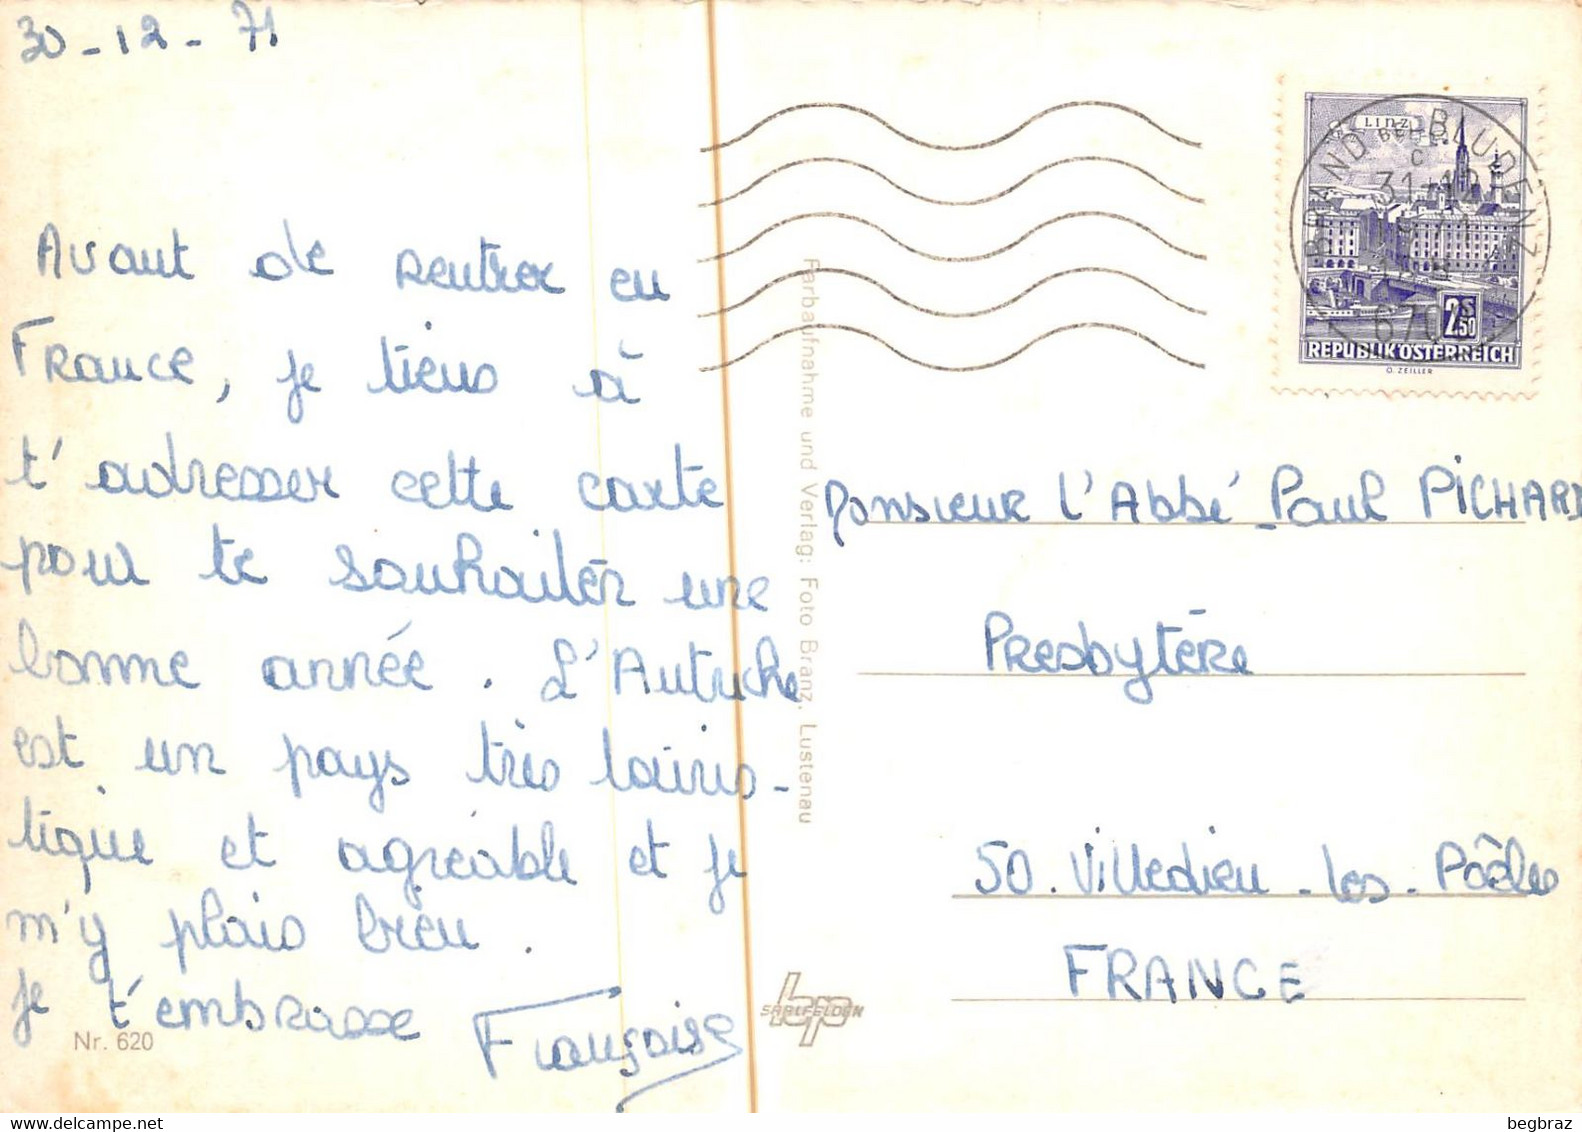 30-12-71
Avant de rentrer en
France, je tiens à
t'adresser cette carte
pour te souhaiter une
bonne année. L'Autriche
est un pays très touris-
tique et agréable et je
m'y plais bien.
je t'embrasse
Françoise
Nr. 620
Farbaufnahme und Verlag: Foto Branz, Lustenau
SAALFELDEN
LINZ
BRAND BEI BLUDENZ
c
31.12
670
2S50
REPUBLIK ÖSTERREICH
O. ZEILLER
Monsieur l'Abbé Paul PICHARD
Presbytère
50. Villedieu-les-Poêles
FRANCE
begbraz